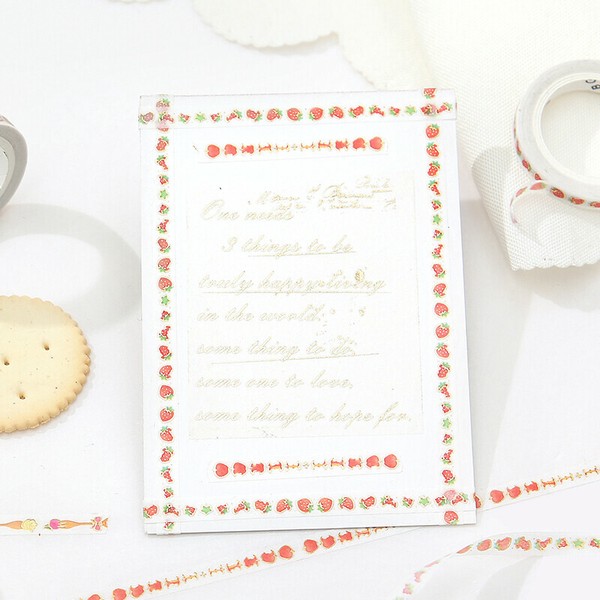 One needs
3 things to be
truly happy living
in the world.
some thing to do,
some one to love,
some thing to hope for.